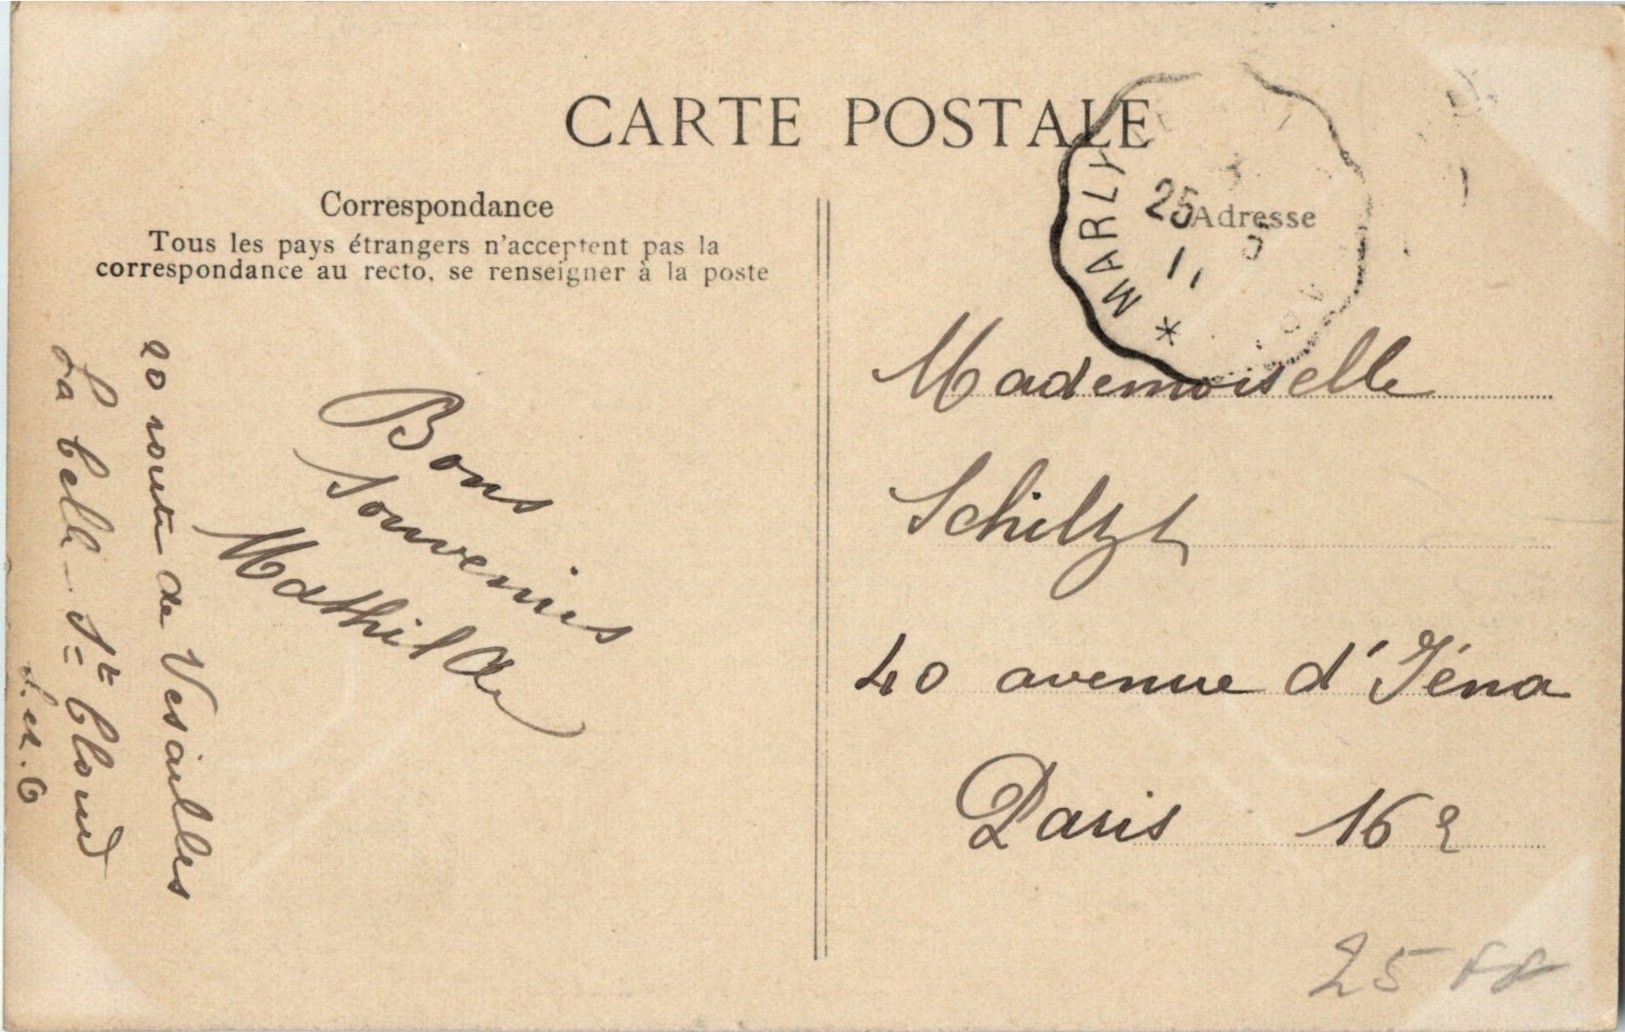 CARTE POSTALE
Correspondance
Tous les pays étrangers n'acceptent pas la
correspondance au recto, se renseigner à la poste
Bons
souvenirs
Mathilde
20 route de Vesailles
La Celle St Cloud
S. et. O
Adresse
MARLY
25
11
Mademoiselle
Schiltzt
40 avenue d'Iéna
Paris 16e
25